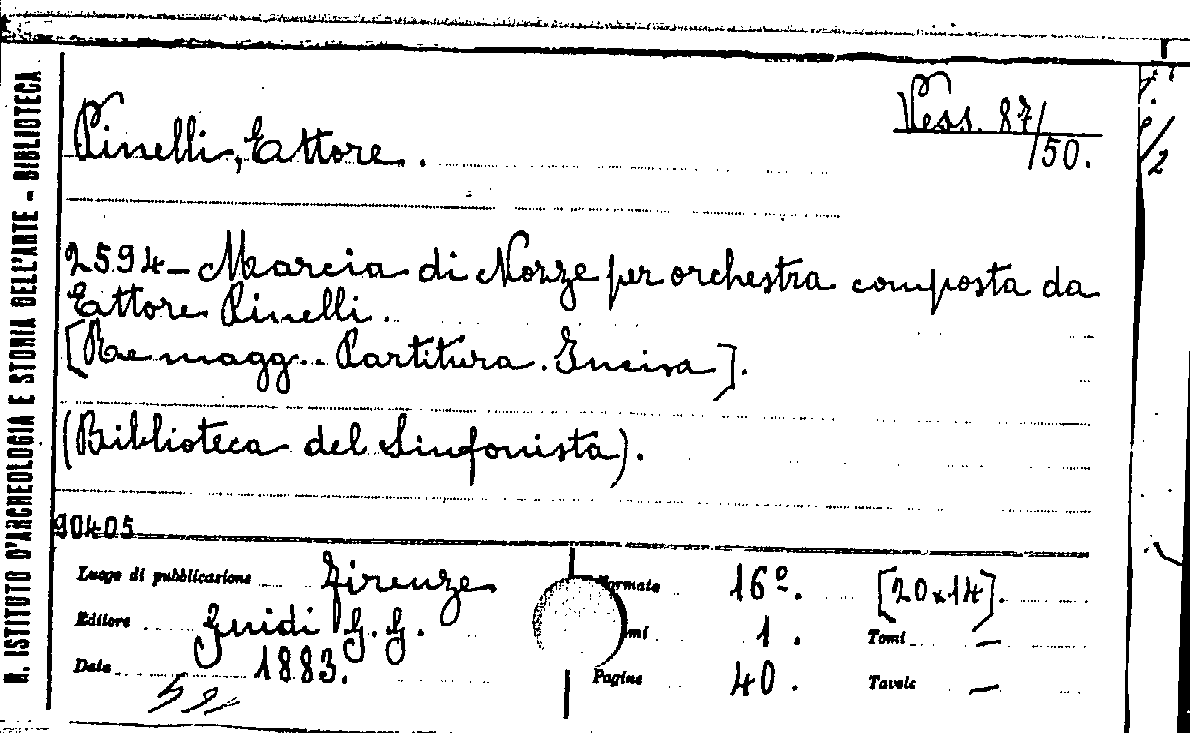 R. ISTITUTO D'ARCHEOLOGIA E STORIA DELL'ARTE - BIBLIOTECA
Vess. 87/50.
Pinelli, Ettore.
2594 - Marcia di Nozze per orchestra composta da
Ettore Pinelli.
[Re magg.. Partitura. Incisa].
(Biblioteca del Sinfonista).
90405
Luogo di pubblicazione Firenze
Editore Guidi G. G.
Data 1883.
Formato 16º. [20x14].
1. Tomi —
Pagine 40. Tavole —